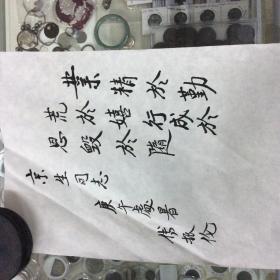 業精於勤
荒於嬉行成於
思毀於隨
京生同志
庚午處暑
傅振伦